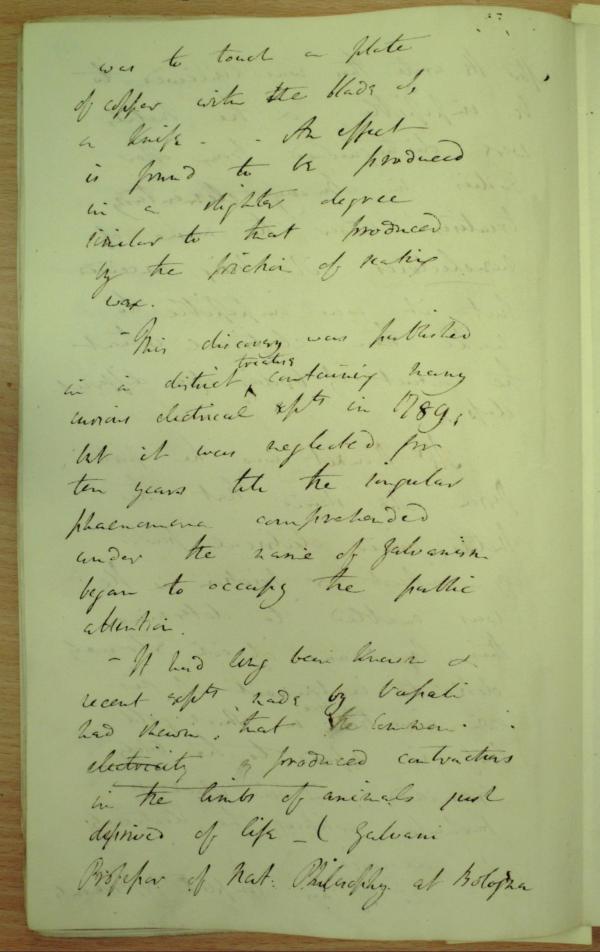 was to touch a plate
of copper with the blade of
a Knife - - An effect
is found to be produced
in a slighter degree
similar to that produced
by the friction of sealing
wax.
- This discovery was published
treatise
in a distinct containing many
curious electrical expts in 1789,
but it was neglected for
ten years till the singular
phaenomena comprehended
under the name of Galvanism
began to occupy the public
attention.
- It had long been known &
recent expts made by Vassali
had shewn, that the common
electricity produced contractions
in the limbs of animals just
deprived of life - ( Galvani
Professor of Nat: Philosophy at Bologna